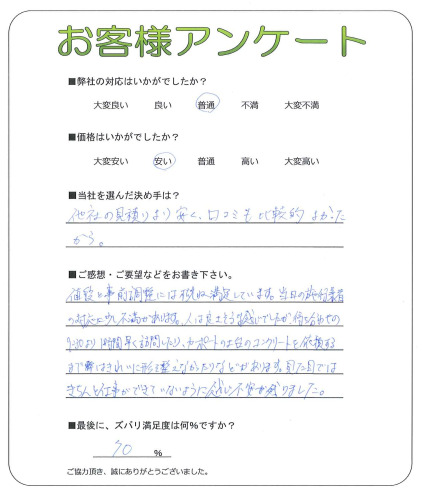 お客様アンケート
■弊社の対応はいかがでしたか？
大変良い 良い 普通 不満 大変不満
■価格はいかがでしたか？
大変安い 安い 普通 高い 大変高い
■当社を選んだ決め手は？
他社の見積りより安く、口コミも比較的よかった
から。
■ご感想・ご要望などをお書き下さい。
値段と事前調整には概ね満足しています。当日の
の対応に少し不満があります。人は良さそうな感じでしたが、待ち合わせの
より1時間早く訪問したり、カーポートの土台のコンクリートを依頼する
まで きれいに形を整えなかったりなどがあります。見た目では
きちんと仕事ができていないように感じ不安が残りました。
■最後に、ズバリ満足度は何%ですか？
70 %
ご協力頂き、誠にありがとうございました。